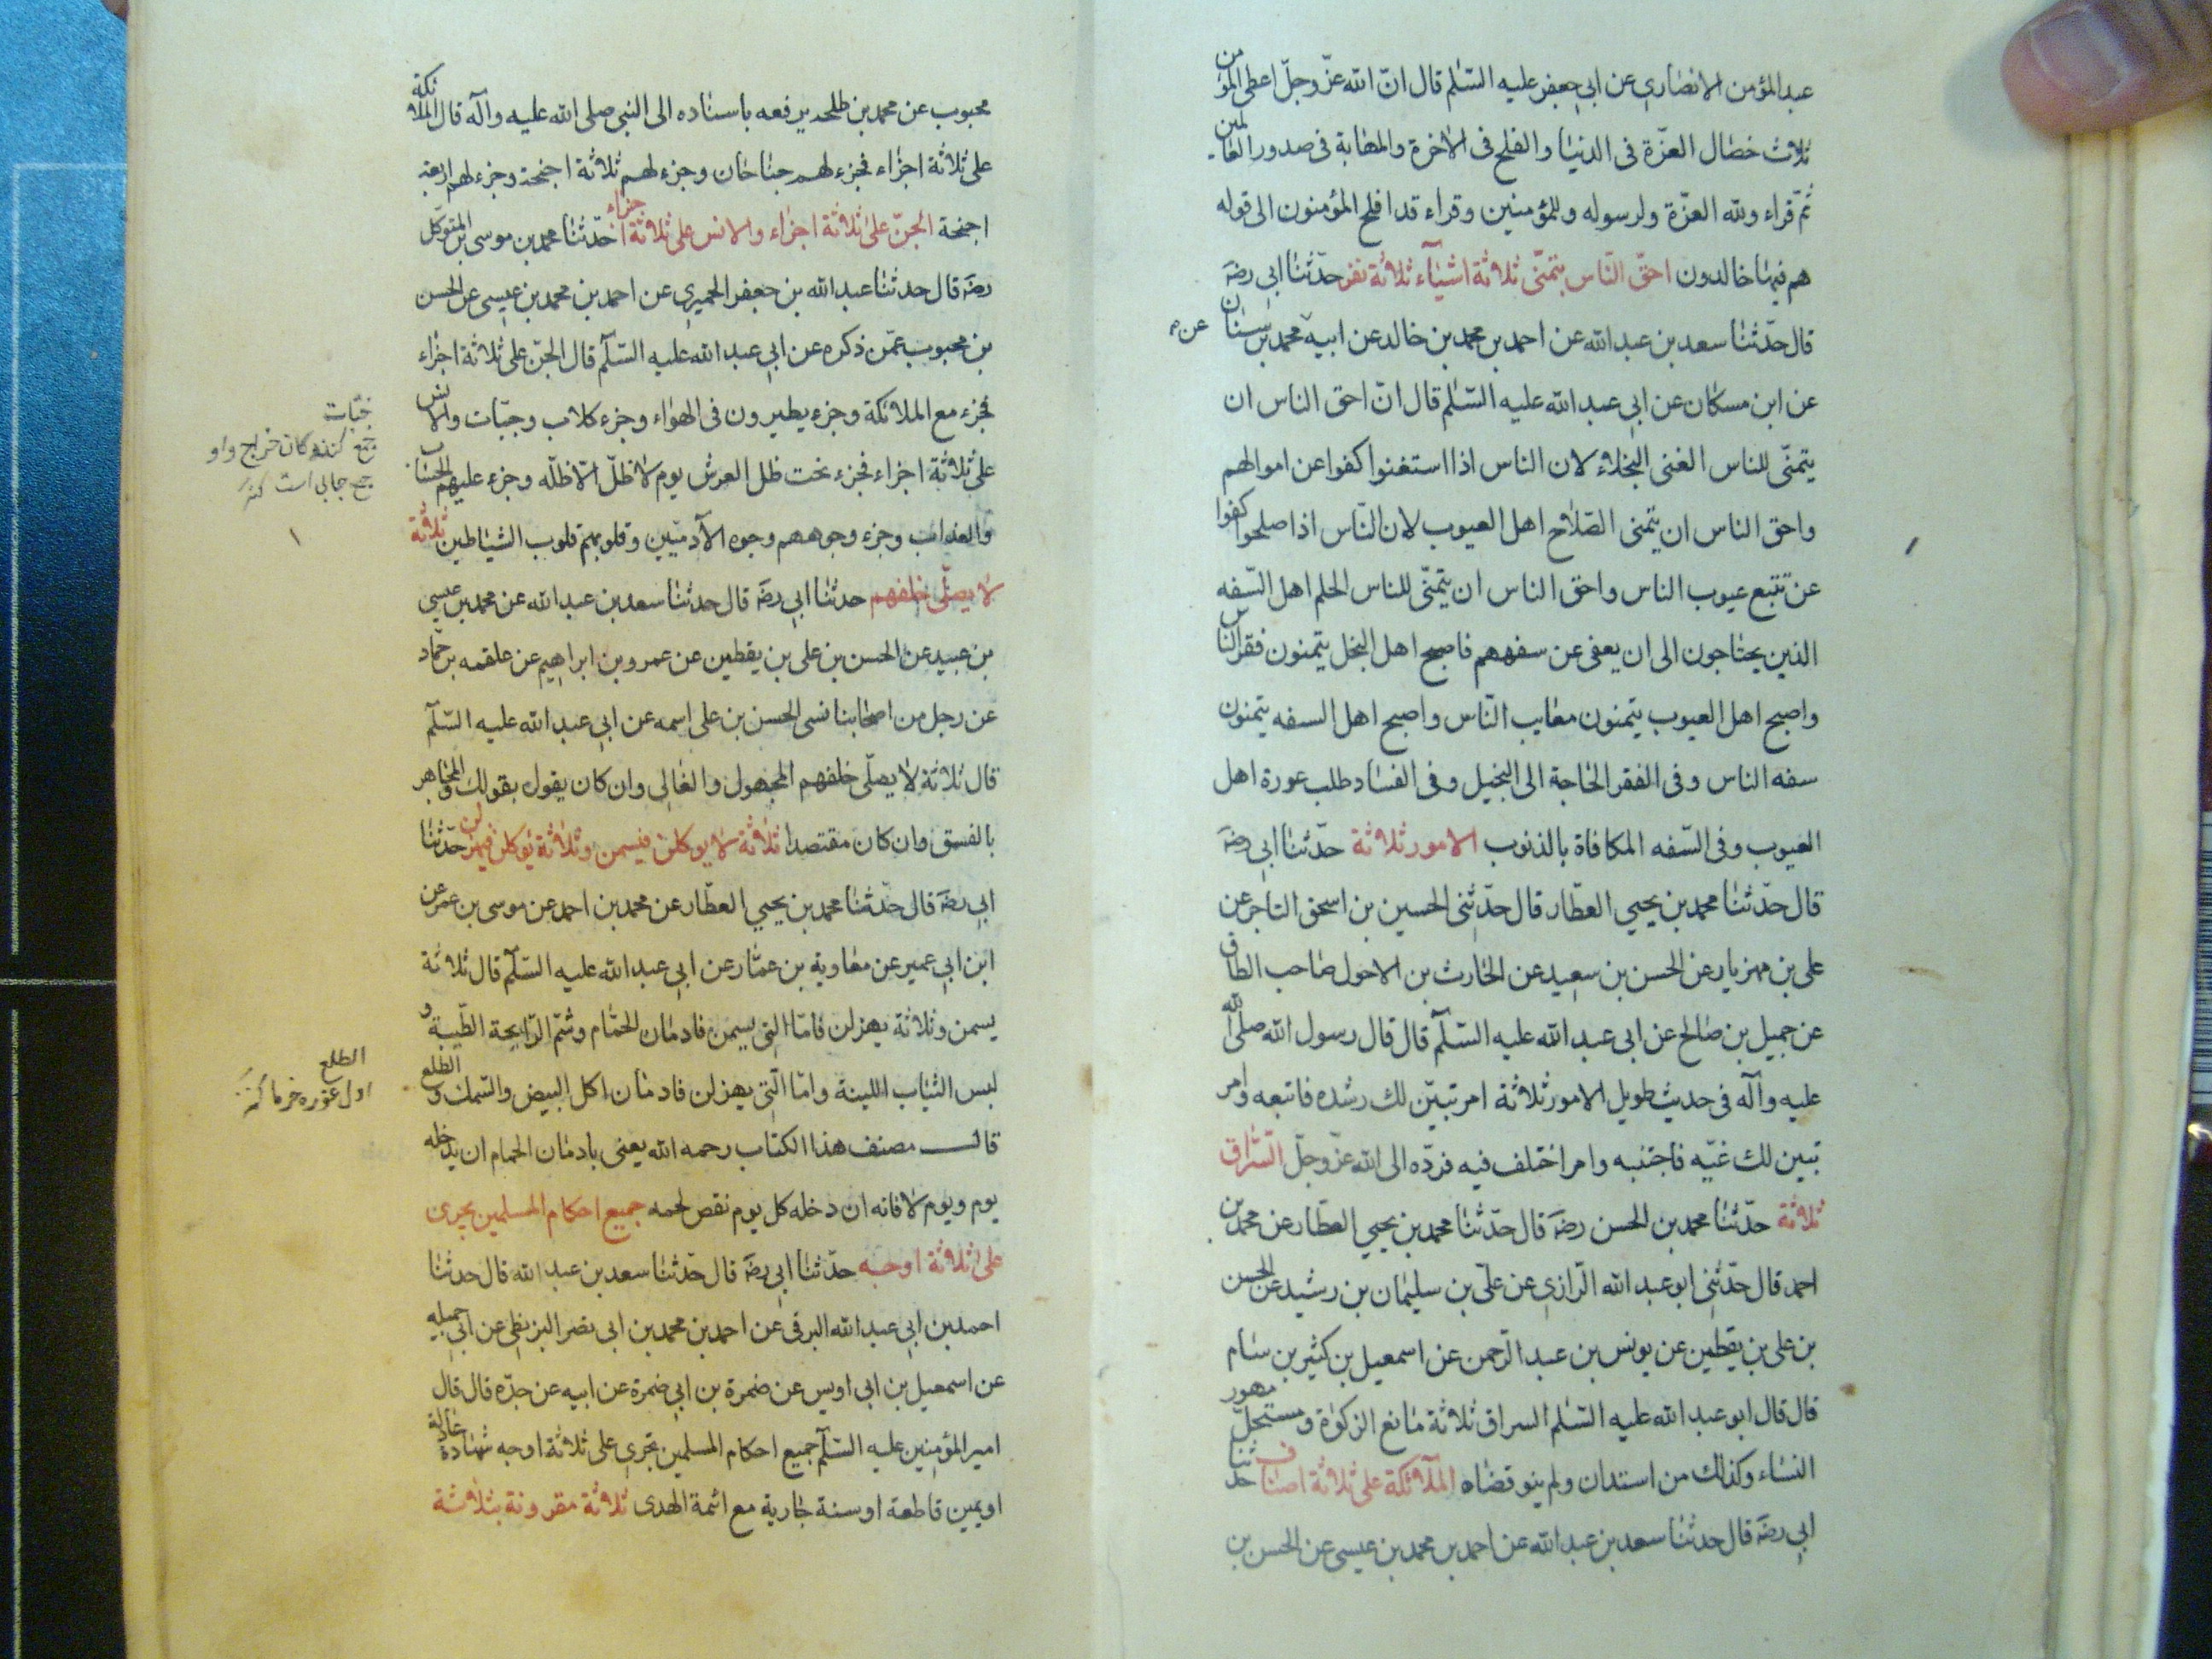 عبد المؤمن الانصاري عن ابي جعفر عليه السّلم قال انّ الله عزّ وجلّ اعطى المؤمن
ثلاث خصال العزّة فى الدنيا والفلح فى الاخرة والمهابة فى صدور العالمين
ثمّ قراء ولله العزّة ولرسوله وللمؤمنين وقراء قد افلح المؤمنون الى قوله
هم فيها خالدون احقّ النّاس بتمنّى ثلاثة اشيآء ثلاثة نفر حدّثنا ابي رضه
قال حدّثنا سعد بن عبد الله عن احمد بن محمد بن خالد عن ابيه محمد بن سنان
عن
عن ابن مسكان عن ابي عبد الله عليه السّلم قال انّ احق الناس ان
يتمنّى للناس الغنى البخلاء لان الناس اذا استغنوا كفوا عن اموالهم
واحق الناس ان يتمنى الصّلاح اهل العيوب لان النّاس اذا صلحوا كفوا
عن تتبع عيوب الناس واحق الناس ان يتمنّى للناس الحلم اهل السّفه
الذين يحتاجون الى ان يعفى عن سفههم فاصبح اهل البخل يتمنون فقر الناس
واصبح اهل العيوب يتمنون معايب النّاس واصبح اهل السفه يتمنون
سفه الناس وفى الفقر الحاجة الى البخيل وفى الفساد طلب عورة اهل
العيوب وفى السّفه المكافاة بالذنوب الامور ثلاثة حدّثنا ابي رضه
قال حدّثنا محمد بن يحيي العطّار قال حدّثنى الحسين بن اسحق التاجر عن
على بن مهزيار عن الحسن بن سعيد عن الحارث بن الاحول صاحب الطاق
عن جميل بن صالح عن ابى عبد الله عليه السّلآم قال قال رسول الله صلى الله
عليه وآله فى حديث طويل الامور ثلاثة امر تبيّن لك رشده فاتبعه وامر
تبين لك غيّه فاجتنبه وامر اختلف فيه فردّه الى الله عزّ وجلّ السّراق
ثلاثة حدّثنا محمد بن الحسن رضه قال حدّثنا محمد بن يحيي العطّار عن محمد بن
احمد قال حدّثنى ابو عبد الله الرّازي عن علىّ بن سليمان بن رشيد عن الحسن
بن على بن يقطين عن يونس بن عبد الرّحمن عن اسمعيل بن كثير بن سام
قال قال ابو عبد الله عليه السّلم السراق ثلاثة مانع الزكوة ومستحلّ مهور
النساء وكذلك من استدان ولم ينو قضاه الملآئكة على ثلاثة اصناف حدثنا
ابي رضه قال حدثنا سعد بن عبد الله عن احمد بن محمد بن عيسى عن الحسن بن
محبوب عن محمد بن طلحه يرفعه باسناده الى النبى صلى الله عليه وآله قال الملائكة
على ثلاثة اجزاء فجزء لهم جناحان وجزء لهم ثلاثة اجنحة وجزء لهم اربعة
اجنحة الجنّ على ثلاثة اجزاء والانس على ثلاثة اجزاء حدّثنا محمد بن موسى بن المتوكّل
رضه قال حدثنا عبد الله بن جعفر الحميري عن احمد بن محمد بن عيسى عن الحسن
بن محبوب عمّن ذكره عن ابي عبد الله عليه السّلآم قال الجنّ على ثلاثة اجزاء
فجزء مع الملائكة وجزء يطيرون فى الهواء وجزء كلاب وحيّات والانس
على ثلاثة اجزاء فجزء تحت ظل العرش يوم لا ظلّ الّا ظلّه وجزء عليهم الحساب
والعذاب وجزء وجوههم وجوه الآدميّين وقلوبهم قلوب الشياطين ثلاثة
لا يصلّى خلفهم حدثنا ابي رضه قال حدثنا سعد بن عبد الله عن محمد بن عيسى
بن عبيد عن الحسن بن على بن يقطين عن عمرو بن ابراهيم عن علقمه بن حمّاد
عن رجل من اصحابنا نسى الحسن بن على اسمه عن ابي عبد الله عليه السّلآم
قال ثلاثة لا يصلّى خلفهم المجهول والغالى وان كان يقول بقولك والمجاهر
بالفسق وان كان مقتصدا ثلاثة لا يوكلن فيسمن وثلاثة يوكلن فيهزلن حدّثنا
ابي رضه قال حدّثنا محمد بن يحيي العطّار عن محمد بن احمد عن موسى بن عمر عن
ابن ابي عمير عن معاوية بن عمّار عن ابي عبد الله عليه السّلآم قال ثلاثة
يسمن وثلاثة يهزلن فامّا التى يسمن فادمان الحمّام وشمّ الرّايحة الطّيبة و
لبس الثياب اللينة وامّا الّتى يهزلن فادمان اكل البيض والسّمك و الطلع
قال مصنف هذا الكتاب رحمه الله يعنى بادمان الحمام ان يدخله
يوم ويوم لا فانه ان دخله كل يوم نقص لحمه جميع احكام المسلمين يجرى
على ثلاثة اوجه حدّثنا ابي رضه قال حدّثنا سعد بن عبد الله قال حدثنا
احمد بن ابي عبد الله البرقى عن احمد بن محمد بن ابى نصر البزنطى عن ابى جميله
عن اسمعيل بن ابى اويس عن ضمرة بن ابي ضمرة عن ابيه عن جدّه قال قال
امير المؤمنين عليه السّلآم جميع احكام المسلمين تجرى على ثلاثة اوجه شهادة عادلة
او يمين قاطعة او سنة جارية مع ائمة الهدى ثلاثة مقرونة بثلاثة
جمع كنندكان خراج واو
الطلع
اول غوره خرما